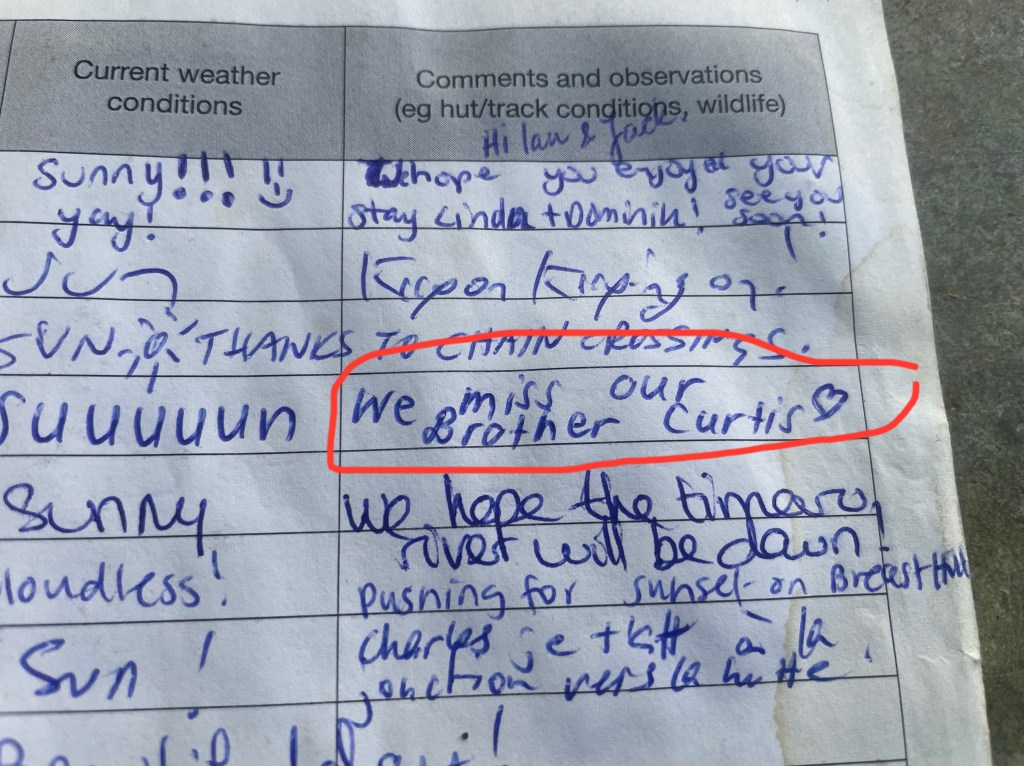 Current weather
conditions
Comments and observations
(eg hut/track conditions, wildlife)
Hi Ian & Jack,
Sunny!!!
yay!
hope you enjoyed your
stay Linda + Dominik! see you
soon!
Sun
on
SUN THANKS TO CHAIN CROSSINGS.
Suuuuun
We miss our
Brother Curtis
Sunny
we hope the timaru
river will be down!
loudless!
pushing for sunset on Breast Hill
Sun!
Charles je à la
jonction vers la hutte!